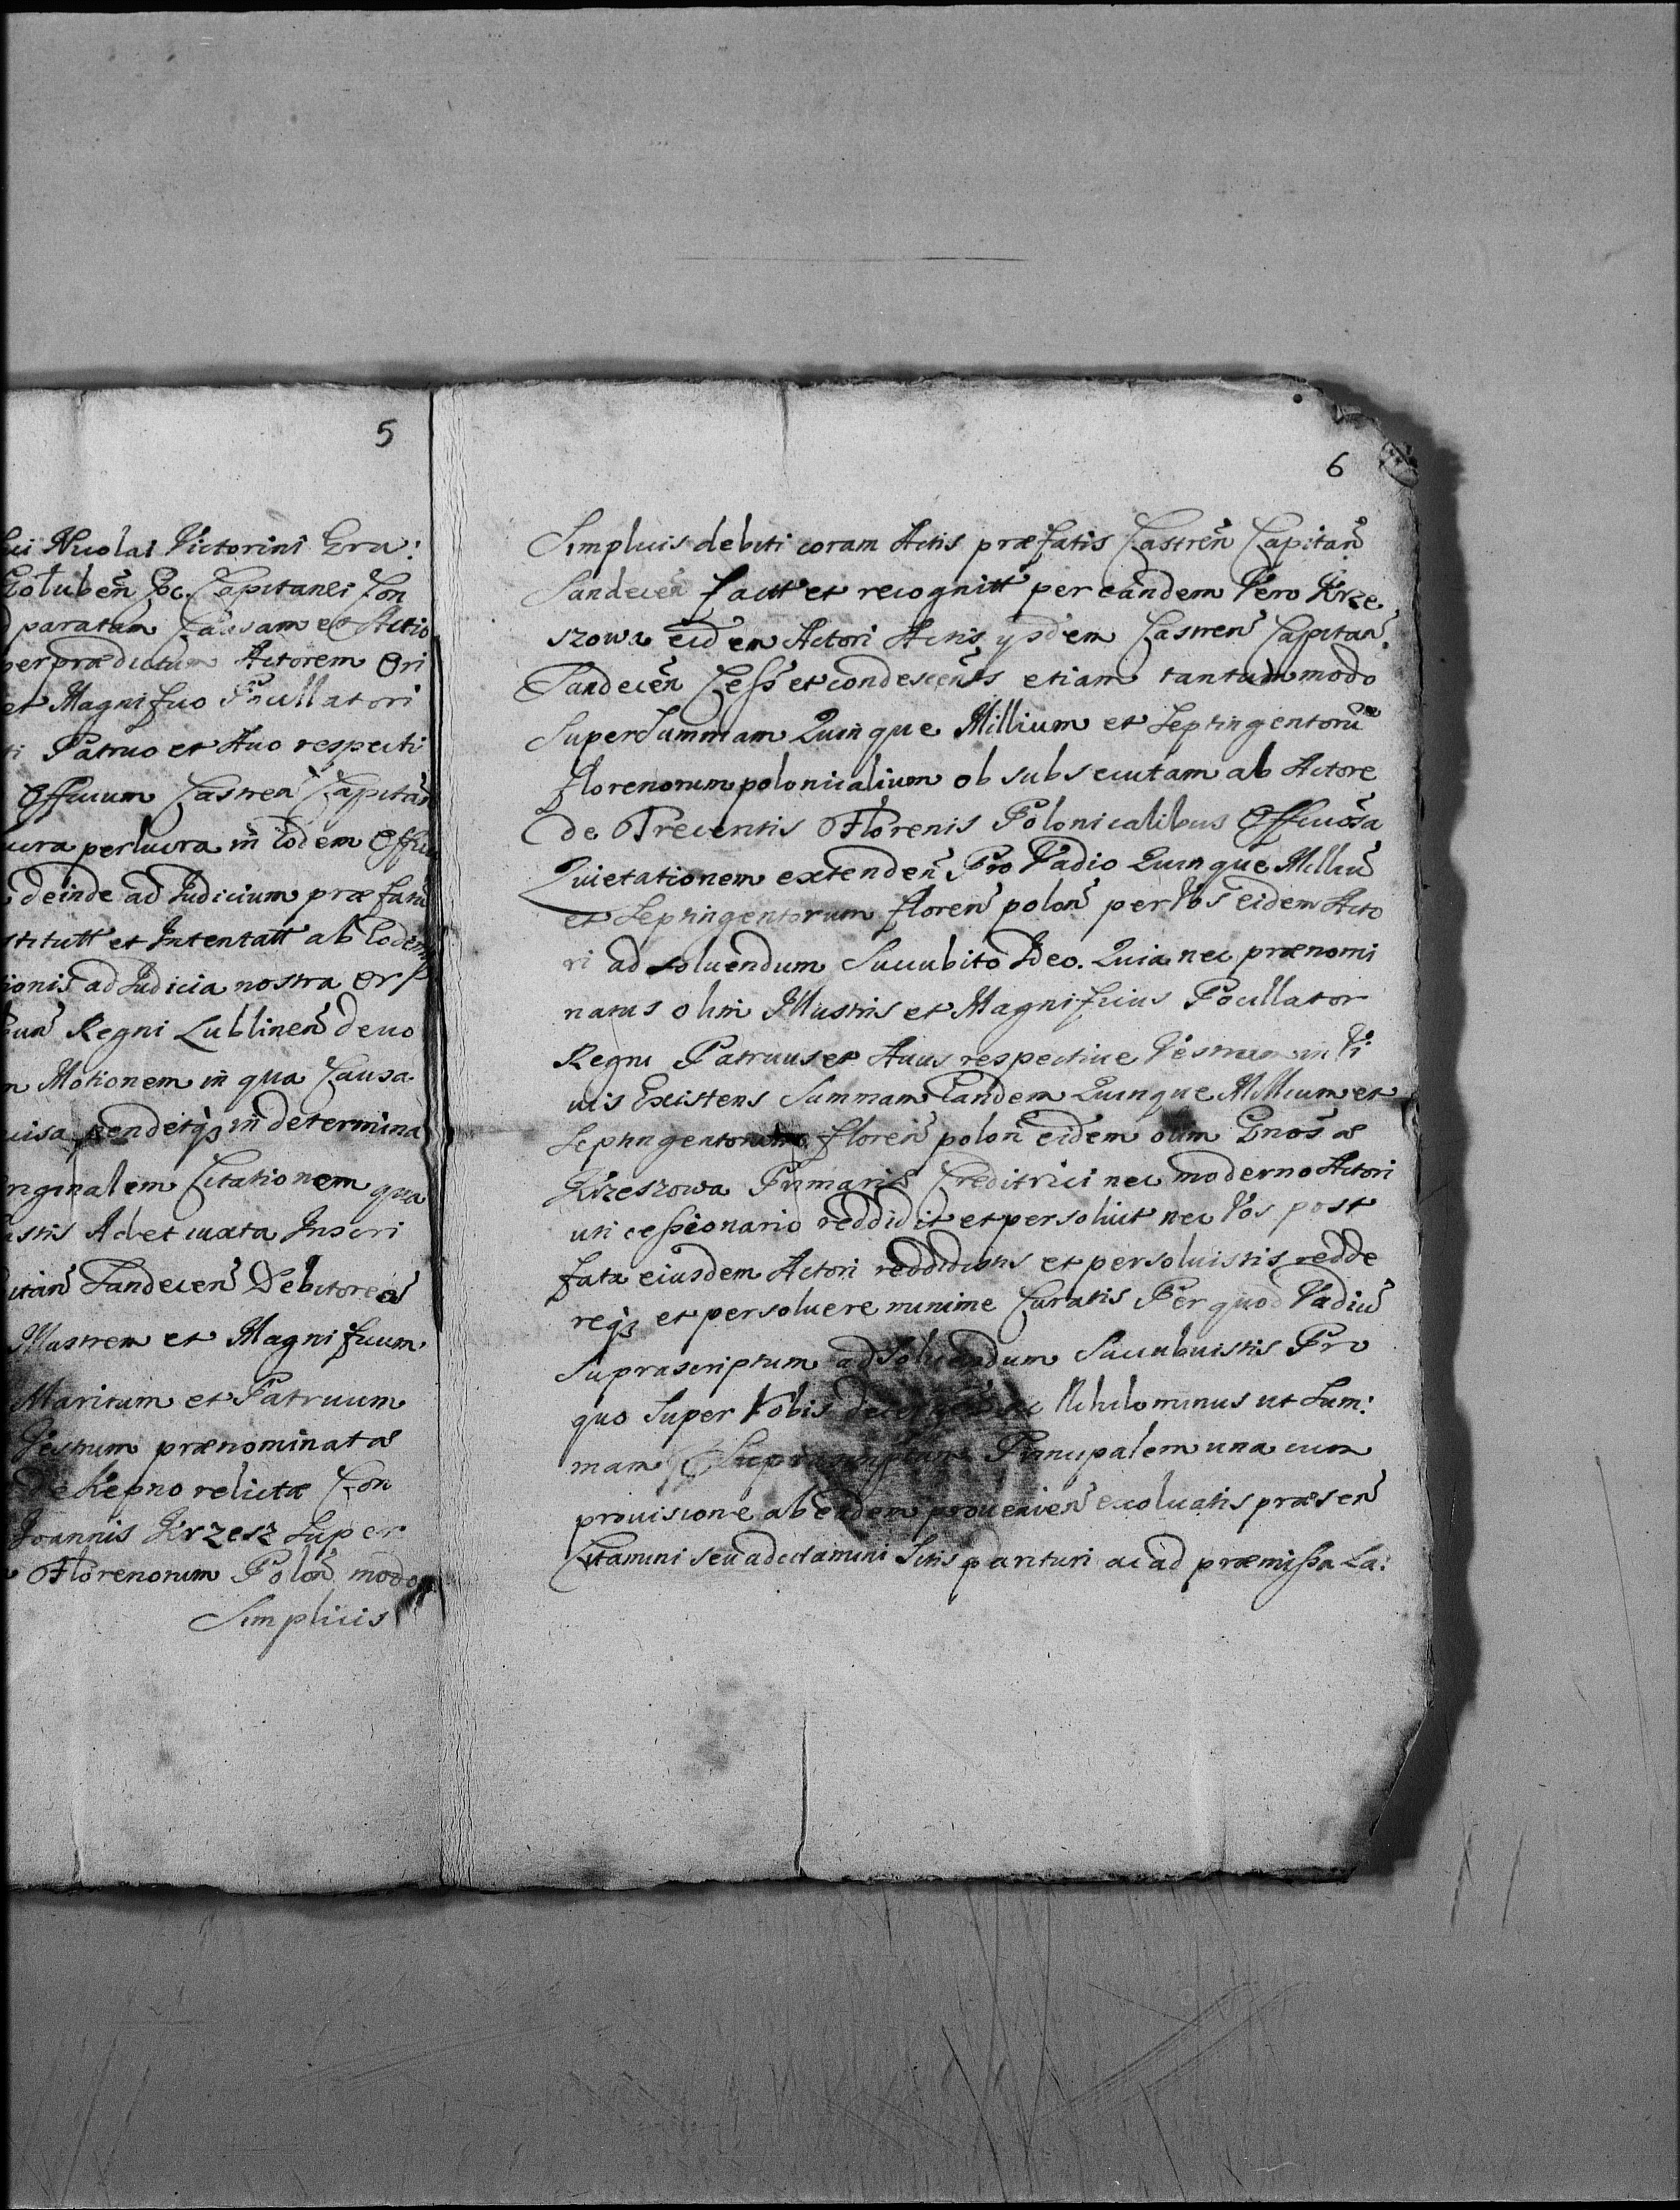 5
Nicolai Victorini Gra:
Gołubeñ Capitanei Con
paratam Causam et Actio
per prædictum Actorem Ori
et Magnifico Pocillatori
Patruo et Auo respecti
Officium Castreñ Capitañ
perlucra in eodem Offici
deinde ad Judicium præfatũ
stitutt et Intentatt ab Eodem
ionis ad Judicia nostra
Regni Lublineñ deuo
Motionem in qua Causa
pendetqȝ in determina
riginalem Citationem qua
Ad et iuxta Inscri
itañ Sandeceñ Debitorea
Illustrem et Magnificum
Maritum et Patruum
Vestrum prænominatæ
de Kepno relictæ Con
Joannis Krzesz Super
Florenorum Poloñ modo
Simplicis
6
Simplicis debiti coram Actis præfatis Castreñ Capitañ
Sandeceñ factt et recognitt per eandem Vero Krze
szowa eidem Actori Actis ysdem Castreñ Capitañ
Sandeceñ Cess et condescens etiam tantummodo
Super Summam Quinque Millium et Septingentorũ
florenorum polonicalium ob subsecutam ab Actore
de Trecentis Florenis Polonicalibus Officiosã
Quietationem extendeñ Pro Vadio Quinque Milliũ
et Septingentorum floreñ poloñ per Vos eidem Acto
ri ad soluendum Succubito Ideo. Quia nec prænomi
natus olim Illustris et Magnificus Pocillator
Regni Patruus et Auus respectiue Vestrum in Vi
uis Existens Summam Eandem Quinque Millium et
Septingentorum floreñ poloñ eidem olim Gnosæ
Krzeszowa Primariæ Creditrici nec moderno Actori
uti cessionario reddidit et persoluit nec Vos post
fata eiusdem Actori reddidistis et persoluistis redde
reqȝ et persoluere minime Curatis Per quod Vadiũ
Suprascriptum ad Soluendum Succubuistis Pro
quo Super Vobis Nihilominus ut Sum:
mam Principalem una cum
prouisione ab eadem prouenieñ exoluatis præseñ
Citamini seu adcitamini Sitis parituri ac ad præmissa La: